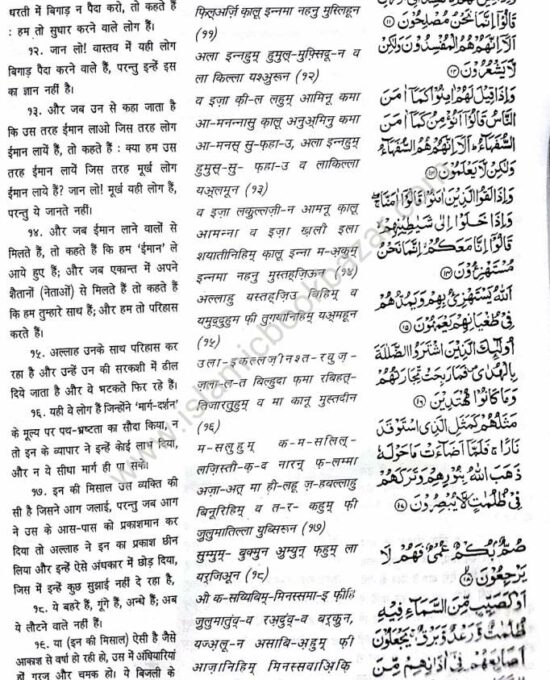 धरती में बिगाड़ न पैदा करो, तो कहते हैं
: हम तो सुधार करने वाले लोग हैं।
१२. जान लो! वास्तव में यही लोग
बिगाड़ पैदा करने वाले हैं, परन्तु इन्हें इस
का ज्ञान नहीं है।
१३. और जब उन से कहा जाता है
कि उस तरह ईमान लाओ जिस तरह लोग
ईमान लायें हैं, तो कहते हैं : क्या हम उस
तरह ईमान लायें जिस तरह मूर्ख लोग
ईमान लाये हैं? जान लो! मूर्ख यही लोग हैं,
परन्तु ये जानते नहीं।
१४. और जब ईमान लाने वालों से
मिलते हैं, तो कहते हैं कि हम 'ईमान' ले
आये हुए हैं; और जब एकान्त में अपने
शैतानों (नेताओं) से मिलते हैं तो कहते हैं
कि हम तुम्हारे साथ हैं; और हम तो परिहास
करते हैं।
१५. अल्लाह उनके साथ परिहास कर
रहा है और उन्हें उन की सरकशी में ढील
दिये जाता है और वे भटकते फिर रहे हैं।
१६. यही वे लोग हैं जिन्होंने 'मार्ग-दर्शन'
के मूल्य पर पथ-भ्रष्टता का सौदा किया, न
तो इन के व्यापार ने इन्हें कोई लाभ दिया,
और न ये सीधा मार्ग ही पा सके।
१७. इन की मिसाल उस व्यक्ति की
सी है जिसने आग जलाई, परन्तु जब आग
ने उस के आस-पास को प्रकाशमान कर
दिया तो अल्लाह ने इन का प्रकाश छीन
लिया और इन्हें ऐसे अंधकार में छोड़ दिया,
जिस में इन्हें कुछ सुझाई नहीं दे रहा है,
१८. ये बहरे हैं, गूंगे हैं, अन्धे हैं; अब
ये लौटने वाले नहीं हैं।
१९. या (इन की मिसाल) ऐसी है जैसे
आकाश से वर्षा हो रही हो, उस में अंधियारियां
हों गरज और चमक हो। ये बिजली के
फ़िल्अर्ज़ि क़ालू इन्नमा नहनु मुस्लिहून
(११)
अला इन्नहुम् हुमुल्-मुफ़्सिदू-न व
ला किल्ला यश्अुरून (१२)
व इज़ा क़ी-ल लहुम् आमिनू कमा
आ-मनन्नासु क़ालू अनुअ्मिनु कमा
आ-मनस् सु-फ़हा-उ, अला इन्नहुम्
हुमुस्-सु- फ़हा-उ व लाकिल्ला
यअ्लमून (१३)
व इज़ा लक़ुल्लज़ी-न आमनू क़ालू
आमन्ना व इज़ा ख़लौ इला
शयातीनिहिम् क़ालू इन्ना म-अ़कुम्
इन्नमा नहनु मुस्तह्ज़िऊन (१४)
अल्लाहु यस्तह्ज़िउ बिहिम् व
यमुद्दुहुम फ़ी तुग़्यानिहिम् यअ्महून
(१५)
उला-इकल्लज़ीनश्त-रवुज़्-
ज़ला-ल-त बिल्हुदा फ़मा रबिहत्-
तिजारतुहुम् व मा कानू मुह्तदीन
(१६)
म-सलुहुम् क-म-सलिल्-
लज़िस्तौ-क़-द नारन् फ़-लम्मा
अज़ा-अत् मा हौ-लहू ज़-हबल्लाहु
बिनूरिहिम् व त-र- कहुम् फ़ी
ज़ुलुमातिल्ला युब्सिरून (१७)
सुम्मुम्- बुक्मुन अुम्युन् फ़हुम् ला
यर्जिअून (१८)
औ क-सय्यिबिम्-मिनस्समा-इ फ़ीहि
ज़ुलुमातुंव्-व रअ़्दुंव्-व बर्क़ुन,
यज्अ़लू-न असाबि-अ़हुम् फ़ी
आज़ानिहिम् मिनस्सवाअ़िक़ि
قَالُوٓا اِنَّمَا نَحْنُ مُصْلِحُوْنَ
اَلَاۤ اِنَّهُمْ هُمُ الْمُفْسِدُوْنَ وَلٰكِنْ
لَّا يَشْعُرُوْنَ
وَاِذَا قِيْلَ لَهُمْ اٰمِنُوْا كَمَاۤ اٰمَنَ
النَّاسُ قَالُوْٓا اَنُؤْمِنُ كَمَاۤ اٰمَنَ
السُّفَهَآءُ ؕ اَلَاۤ اِنَّهُمْ هُمُ السُّفَهَآءُ
وَلٰكِنْ لَّا يَعْلَمُوْنَ
وَاِذَا لَقُوا الَّذِيْنَ اٰمَنُوْا قَالُوْٓا اٰمَنَّا
وَاِذَا خَلَوْا اِلٰى شَيٰطِيْنِهِمْ
قَالُوْٓا اِنَّا مَعَكُمْ اِنَّمَا نَحْنُ
مُسْتَهْزِءُوْنَ
اَللّٰهُ يَسْتَهْزِئُ بِهِمْ وَيَمُدُّهُمْ
فِىْ طُغْيَانِهِمْ يَعْمَهُوْنَ
اُولٰٓئِكَ الَّذِيْنَ اشْتَرَوُا الضَّلٰلَةَ
بِالْهُدٰى فَمَا رَبِحَتْ تِّجَارَتُهُمْ
وَمَا كَانُوْا مُهْتَدِيْنَ
مَثَلُهُمْ كَمَثَلِ الَّذِى اسْتَوْقَدَ
نَارًا ۚ فَلَمَّاۤ اَضَآءَتْ مَا حَوْلَهٗ
ذَهَبَ اللّٰهُ بِنُوْرِهِمْ وَتَرَكَهُمْ
فِىْ ظُلُمٰتٍ لَّا يُبْصِرُوْنَ
صُمٌّۢ بُكْمٌ عُمْىٌ فَهُمْ لَا
يَرْجِعُوْنَ
اَوْ كَصَيِّبٍ مِّنَ السَّمَآءِ فِيْهِ
ظُلُمٰتٌ وَّرَعْدٌ وَّبَرْقٌ ۚ يَجْعَلُوْنَ
اَصَابِعَهُمْ فِىْۤ اٰذَانِهِمْ مِّنَ